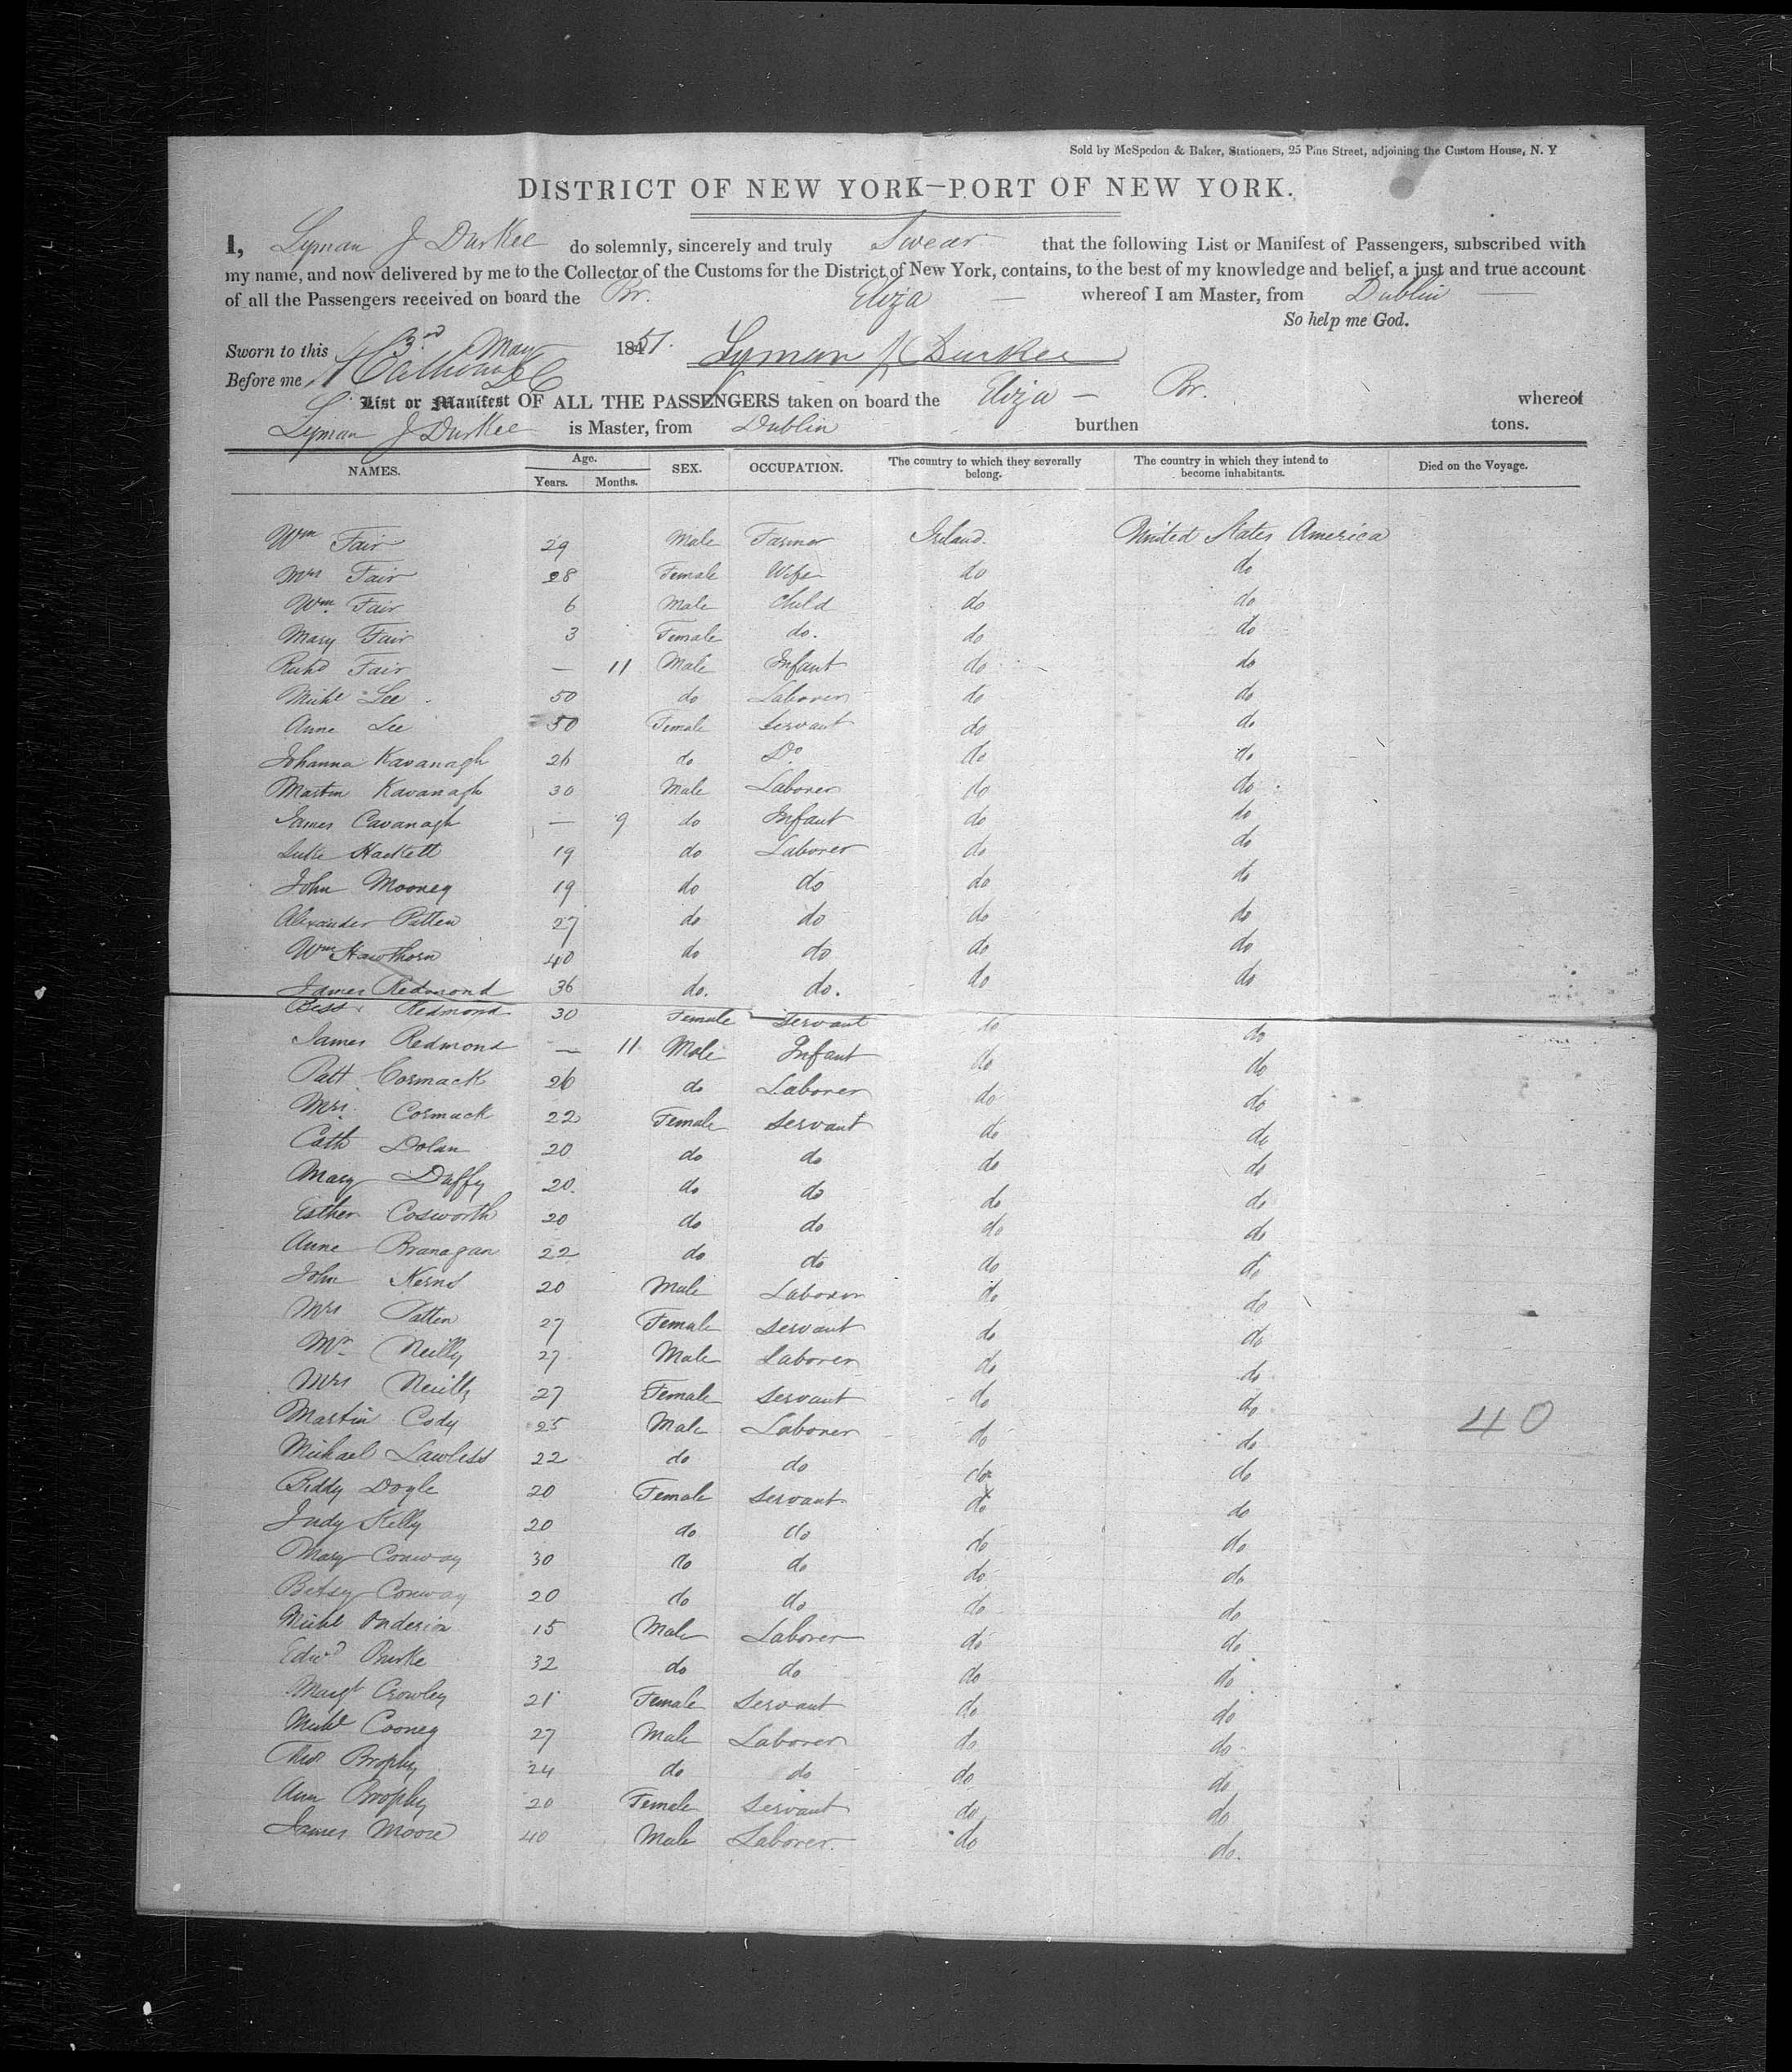 Sold by McSpedon & Baker, Stationers, 25 Pine Street, adjoining the Custom House, N. Y
DISTRICT OF NEW YORK—PORT OF NEW YORK.
I, Lyman J Durkee do solemnly, sincerely and truly Swear that the following List or Manifest of Passengers, subscribed with
my name, and now delivered by me to the Collector of the Customs for the District of New York, contains, to the best of my knowledge and belief, a just and true account
of all the Passengers received on board the Br. Eliza — whereof I am Master, from Dublin —
So help me God.
Sworn to this 3rd May 1851. Lyman J Durkee
Before me Calhoun DC
List or Manifest OF ALL THE PASSENGERS taken on board the Eliza — Br. whereof
Lyman J Durkee is Master, from Dublin burthen tons.
NAMES. Age. Years. Months. SEX. OCCUPATION. The country to which they severally belong. The country in which they intend to become inhabitants. Died on the Voyage.
Wm Fair 29 Male Farmer Ireland. United States America
Mrs Fair 28 Female Wife do do
Wm. Fair 6 Male Child do do
Mary Fair 3 Female do. do do
Richd Fair — 11 Male Infant do do
Michl Lee 50 do Laborer do do
Anne Lee 50 Female Servant do do
Johanna Kavanagh 26 do Do do do
Martin Kavanagh 30 Male Laborer do do
James Cavanagh — 9 do Infant do do
Luke Hackett 19 do Laborer do do
John Mooney 19 do do do do
Alexander Patten 27 do do do do
Wm Hawthorn 40 do do do do
James Redmond 36 do. do. do do
Bess Redmond 30 Female Servant do do
James Redmond — 11 Male Infant do do
Patt Cormack 26 do Laborer do do
Mrs. Cormack 22 Female Servant do do
Cath Dolan 20 do do do do
Mary Daffy 20. do do do do
Esther Cosworth 20 do do do do
Anne Branagan 22 do do do do
John Kerns 20 Male Laborer do do
Mrs Patten 27 Female Servant do do
Mr Neilly 27 Male Laborer do do
Mrs Neilly 27 Female Servant do do
Martin Cody 25 Male Laborer do do 40
Michael Lawless 22 do do do do
Biddy Doyle 20 Female Servant do do
Judy Kelly 20 do do do do
Mary Conway 30 do do do do
Betsy Conway 20 do do do do
Michl Anderson 15 Male Laborer do do
Edwd Burke 32 do do do do
Margt Crowley 21 Female Servant do do
Michl Cooney 27 Male Laborer do do
Thos Brophy 24 do do do do
Ann Brophy 20 Female Servant do do
James Moore 40 Male Laborer do do.